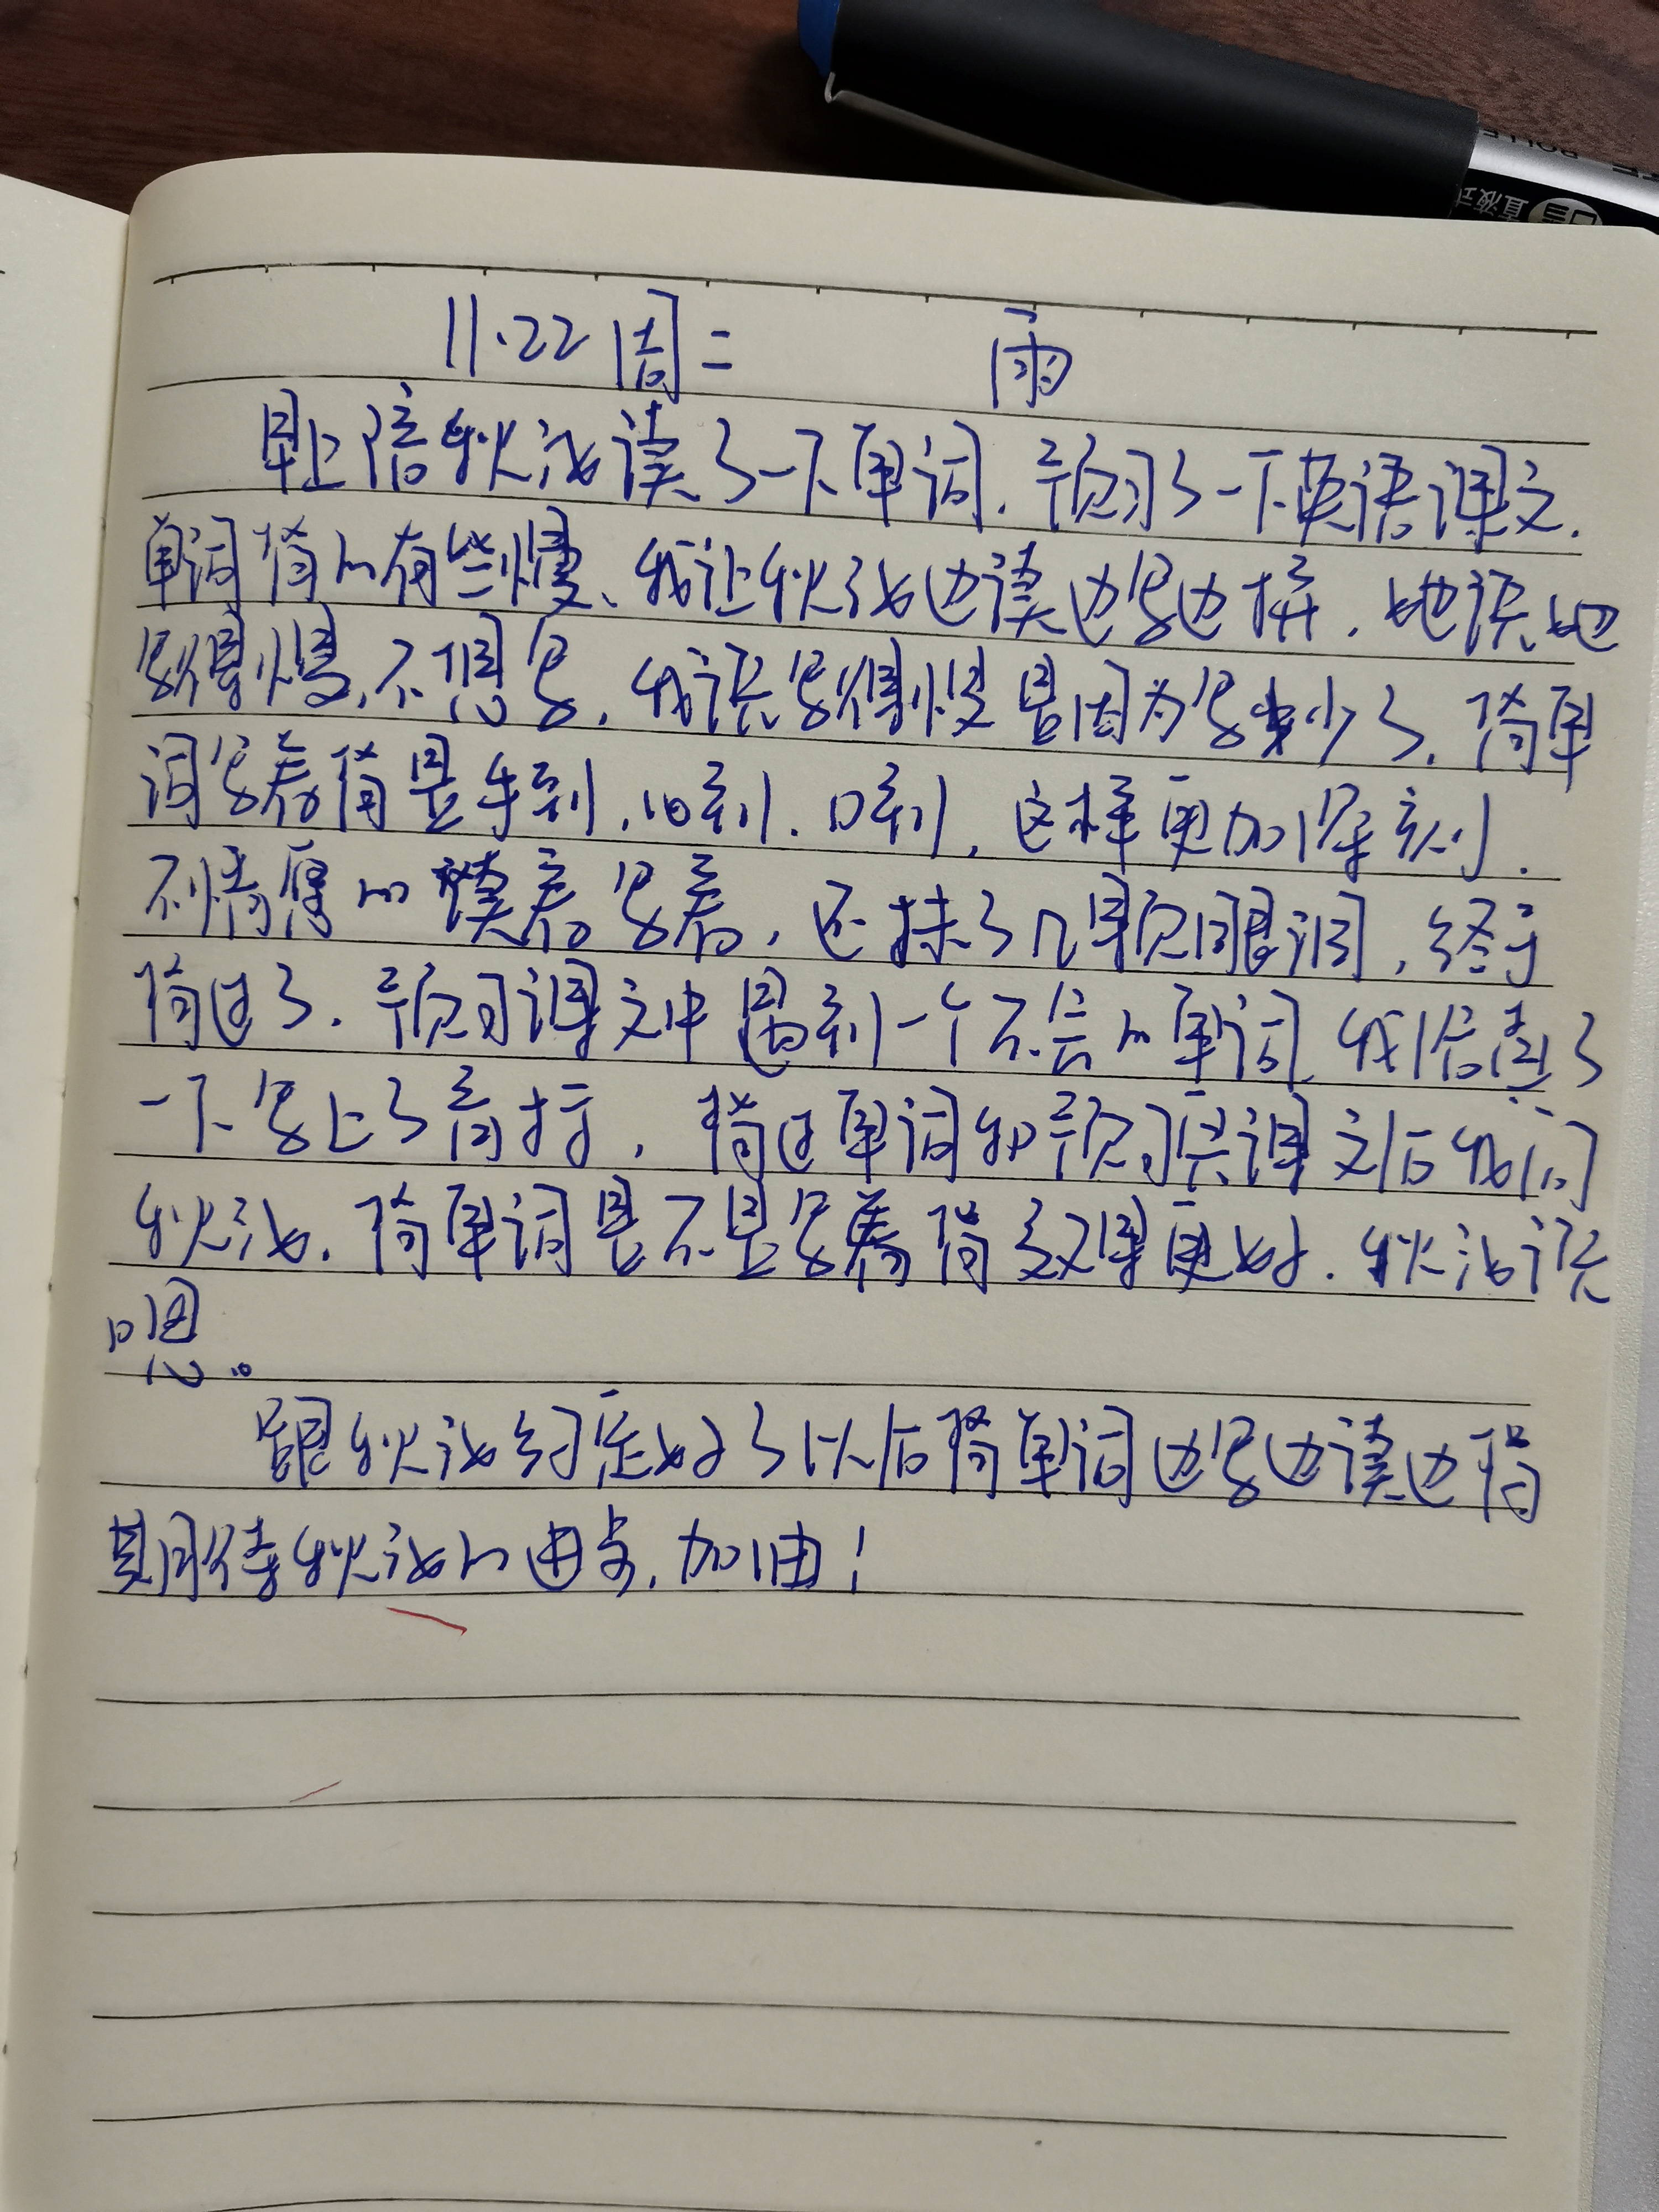 11.22 周二 雨
早上陪秋泓读了一下单词.预习了一下英语课文.
单词背的有些慢、我让秋泓边读边写边拼.她说她
写得慢,不想写.我说写得慢是因为写少了.背单
词写着背是手到,心到.口到,这样更加深刻.
不情愿的读着写着,还抹了几颗眼泪,终于
背过了.预习课文中遇到一个不会的单词 我陪查了
一下写上了音标,背过单词和预习完课文后我问
秋泓.背单词是不是写着背效果更好.秋泓说
嗯。
跟秋泓约定好了以后背单词边写边读边背
期待秋泓的进步.加油!
直液式